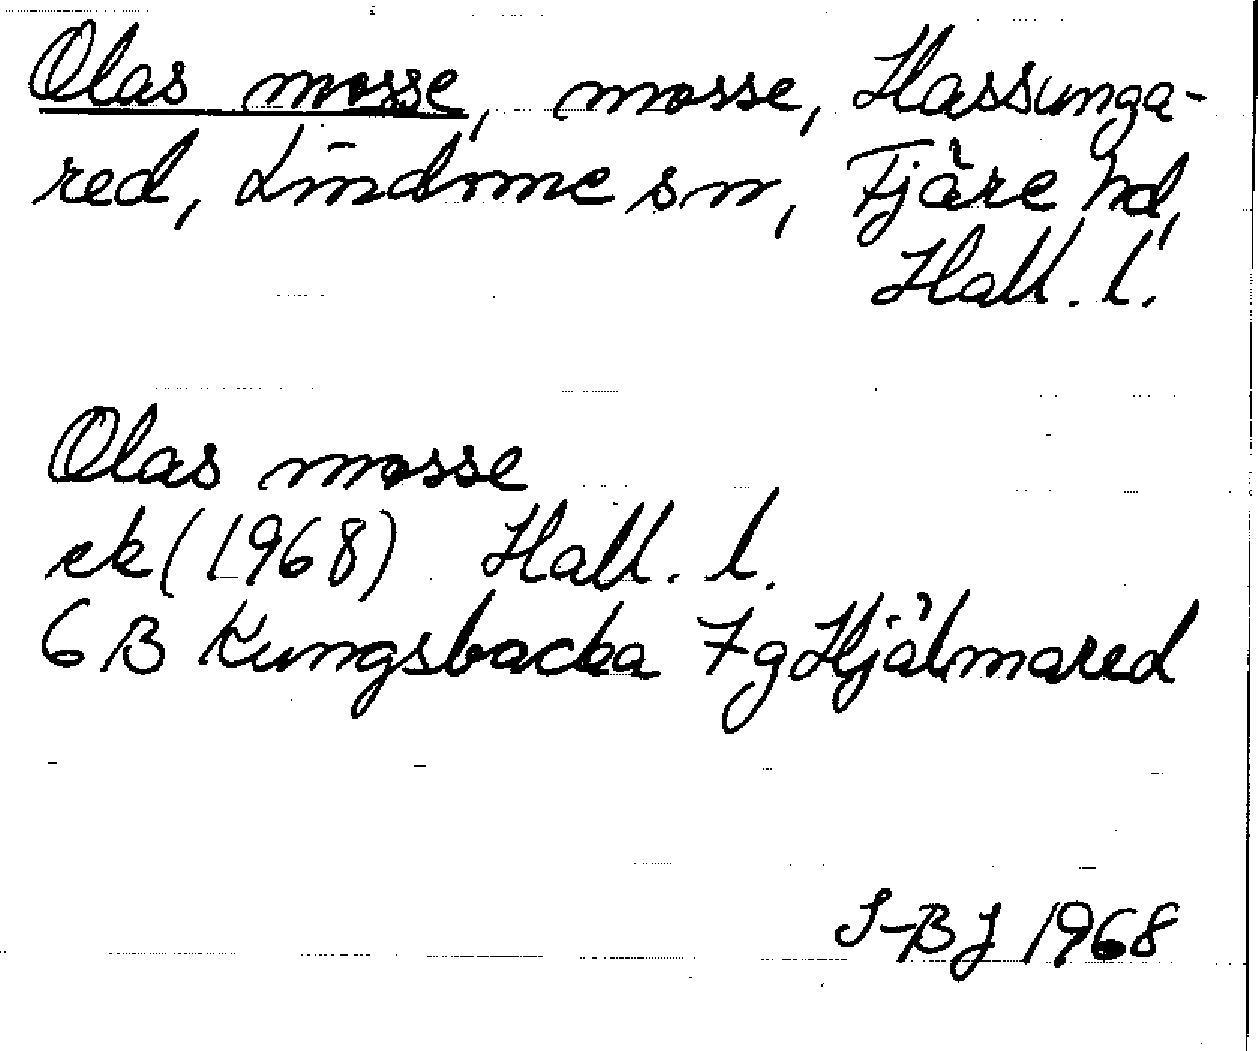 Olas mosse, mosse, Hassunga-
red, Lindome sn, Fjäre hd,
Hall. l.
Olas mosse
ek (1968) Hall. l.
6 B Kungsbacka 7 g Hjälmared
S-BJ 1968